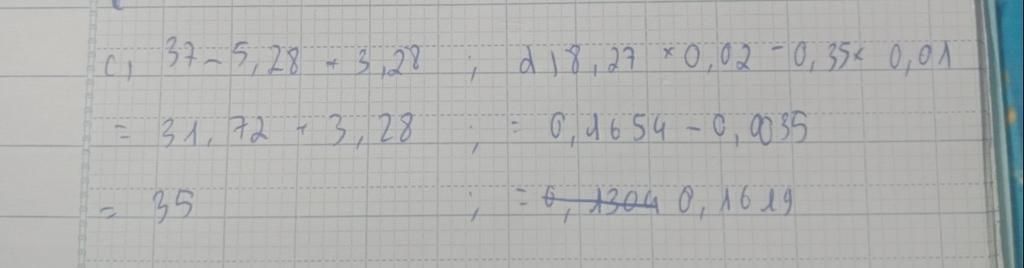 c, 37 - 5,28 + 3,28 ; d, 8,27 × 0,02 - 0,35 × 0,01
= 31,72 + 3,28 ; = 0,1654 - 0,0035
= 35 ; = 0,1304 0,1619